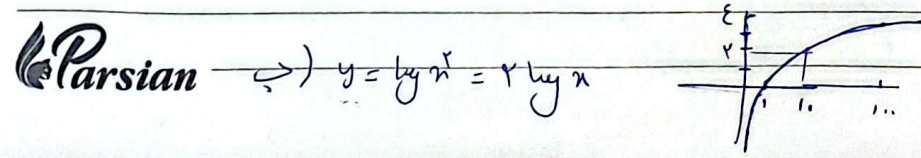 Parsian
ب) y = log x² = ۲ log x
۴
۲
۱ ۱۰ ۱۰۰